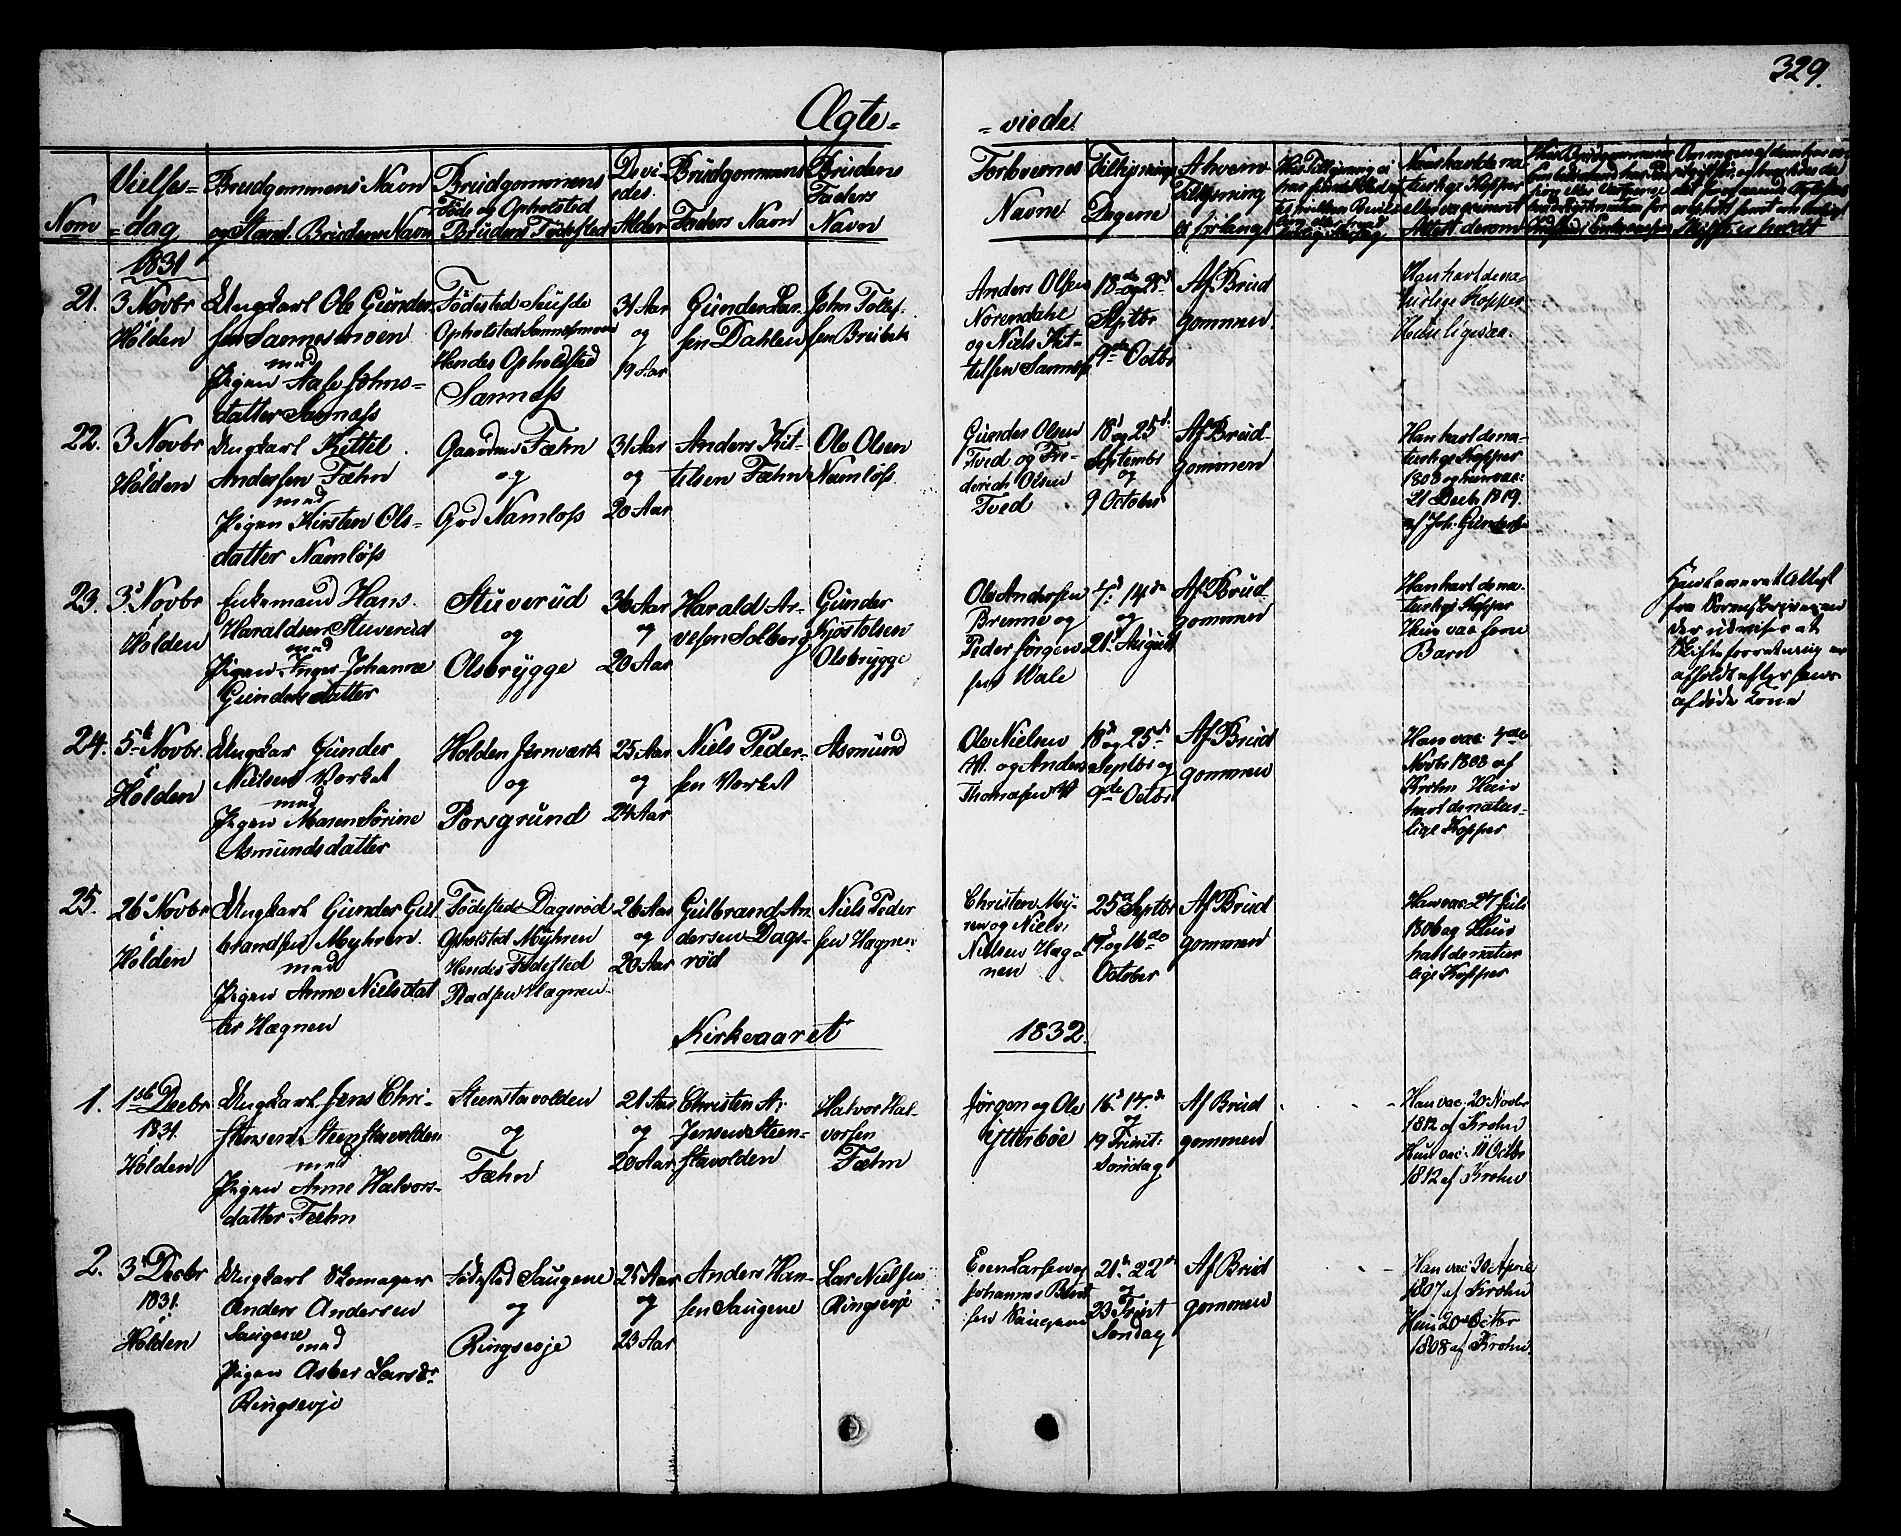 329.
Ægte-
-viede
Nom
Vielses-
-dag
Brudgommens Navn
og Stand. Brudens Navn
Brudgommens
Føde og Opholdsted
Brudens Fødested
De Vi-
edes
Alder
Brudgommens
Faders Navn
Brudens
Faders
Navn
Forlovernes
Navne
Tillysnings
Dagene
Af hvem
Tillysning
er forlangt
1831
21.
3 Novbr
i
Holden
Ungkarl Ole Gunder-
sen Sannesmoen
med
Pigen Aase Johns-
datter Sannæss
Fødested Saufde
Opholsted Sannesmoen
Hendes Opholdsted
Sannæss
31 Aar
og
19 Aar
Gunder Lar-
sen Dahlen
John Tollef-
sen
Anders Olsen
Norendahl
og Niels Kit-
tilsen Sannæss
18de og 25d
Septbr
9de Octbr
Af Brud
gommen
Han havt de na-
turlige Kopper
Hun ligesaa.
22.
3 Novbr
i
Holden
Ungkarl Kittil
Andersen Fæhn
med
Pigen Kirsten Ols-
datter Namløss
Gaarden Fæhn
og
Grd Namløss
31 Aar
og
20 Aar
Anders Kit-
tilsen Fæhn
Ole Olsen
Namløss
Gunder Olsen
Tved og Fri-
derich Olsen
Tved
18d og 25d
Septembr
og
9 October
Af Brud-
gommen
Han havt de na-
turlige Kopper
1808 og hun vac:
21 Decb. 1819.
af Joh. Gundersen
23.
3d Novbr
i
Holden
Enkemand Hans
Haraldsen Stuverud
med
Pigen Inger Johanne
Gundersdatter
Stuverud
og
Olsbrygge
36 Aar
og
20 Aar
Harald Ar-
vesen Solberg
Gunder
Kjøstolsen
Olsbrygge
Ole Andersen
Brenne og
Peder Jørgen-
sen Wale
7d 14de
og
21d August
Af Brud
gommen
Han havt de na-
turlige Kopper
Hun vac som
Barn
Han leveret Attest
fra Sorenskriveren
der udviser at
Skifteforretning er
afholdt efter hans
afdøde Kone
24.
5te Novbr.
i
Holden
Ungkar Gunder
Nielsen Verket
med
Pigen Maren Sørine
Asmundsdatter
Holden Jernværk
og
Porsgrund
25 Aar
og
24 Aar
Niels Peder-
sen Verket
Asmund
Ole Nielsen
V. og Anders
Thomasen V
18d og 25d
Septbr og
9de Octbr
Af Brud
gommen
Han vac. 7de
Novbr 1808 af
Krohn Hun
havt de natur-
lige Kopper
25.
26d Novbr
i
Holden
Ungkarl Gunder Gul
brandsen Myhren
med
Pigen Anne Nielsdat
ter Hægnen
Fødested Dagsrød
Opholsted Myhren
Hendes Fødested
Pladsen Hægnen
26 Aar
og
20 Aar
Gulbrand An-
dersen Dags-
rød
Niels Peder
sen Hægnen
Christen Myh-
ren og Niels
Nielsen Hæg-
nen
25d Septbr
17d og 16de
October
Af Brud
gommen
Han vac. 27 Juli
1806 og Hun
havt de natur
lige Kopper
Kirkeaaret
1832.
1.
1ste Decbr
1831.
i
Holden
Ungkarl Jens Chri-
stensen Steenstavolden
med
Pigen Anne Halvors-
datter Fæhn
Steenstavolden
og
Fæhn
21 Aar
og
20 Aar
Christen A:
Jensen Steen-
stavolden
Halvor Hal-
vorsen
Fæhn
Jørgen og Ole
Ytterbøe
16d 17d
og
19 Trinit:
Søndag
Af Brud
gommen
Han vac. 20 Novbr
1812 af Krohn
Hun vac. 11 Octbr
1812 af Krohn
2.
3d Decbr
1831.
i
Holden
Ungkarl Skomager
Anders Andersen
Saugene
med
Pigen Asber Larsdr
Ringsevje
Fødested Saugene
og
Ringsevje
25 Aar
og
23 Aar
Anders Han-
sen Saugene
Lars Nielsen
Ringsevje
Even Larsen og
Johannes
sen Saugene
21d 22de
og
23 Trint
Søndag
Af Brud
gommen
Han vac. 30 April
1807 af Krohn
Hun 20de Octbr
1808 af Krohn.